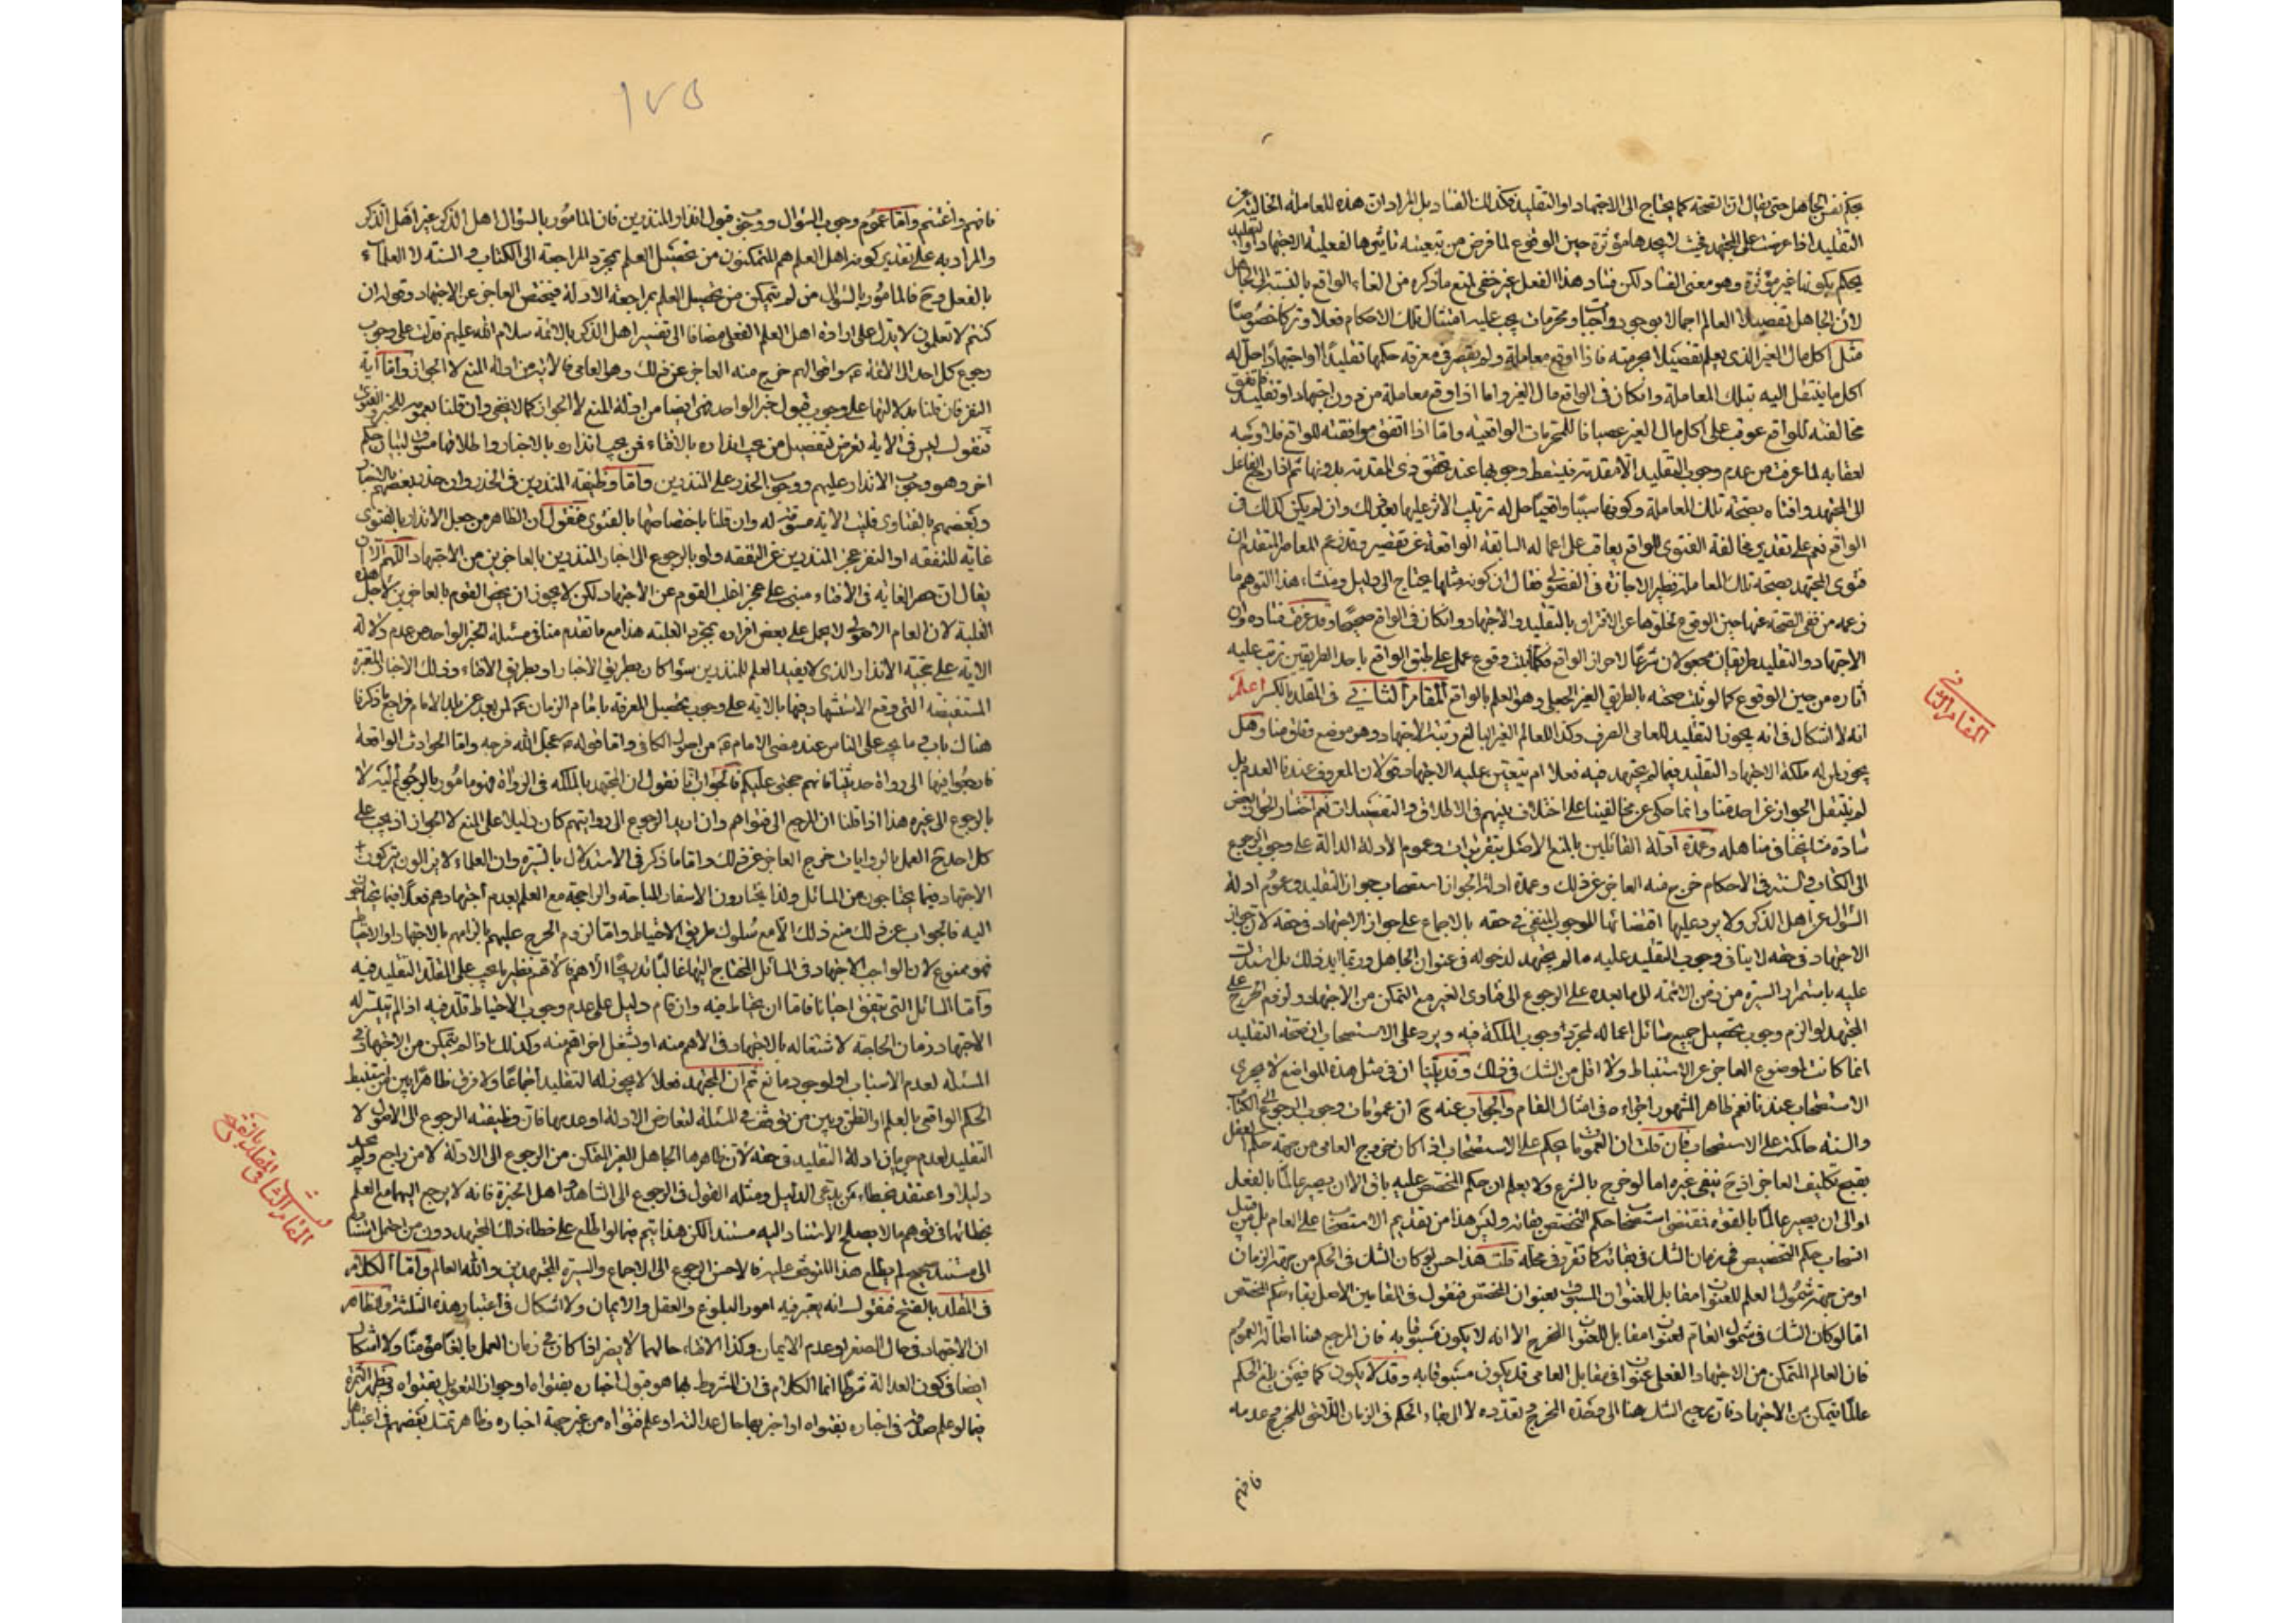 بحكم نفس الجاهل حتى يقال ان الصحة كما يحتاج الى الاجتهاد او التقليد فكذلك الفساد بل المراد ان هذه المعاملة الخالية عن
التقليد اذا عرضت على المجتهد فحيث لا يجدها مؤثرة حين الوقوع لما فرض من تبعية تاثيرها لفعلية الاجتهاد او التقليد
يحكم بكونها غير مؤثرة وهو معنى الفساد لكن فساد هذا الفعل غير خفي لمنع ما ذكره من الغاء الواقع بالنسبة الى الجاهل
لان الجاهل تفصيلا العالم اجمالا بوجود واجبات ومحرمات يجب عليه امتثال تلك الاحكام فعلا وتركا خصوصا
مثل اكل مال الغير الذي يعلم تفصيلا بحرمته فاذا اوقع معاملة ولم يقصر في معرفة حكمها تقليدا او اجتهادا حل له
اكل ما ينتقل اليه بتلك المعاملة وان كان في الواقع مال الغير واما اذا اوقع معاملة من دون اجتهاد او تقليد فان اتفق
مخالفته للواقع عوقب على اكل مال الغير عصيانا للمحرمات الواقعية واما اذا اتفق موافقته للواقع فلا وجه
لعقابه لما عرفت من عدم وجوب التقليد الا مقدمة فيسقط وجوبها عند تحقق ذي المقدمة بدونها ثم اذا رجع الجاهل
الى المجتهد وافتاه بصحة تلك المعاملة وكونها سببا واقعيا حل له ترتيب الاثر عليها بعد ذلك وان لم يكن كذلك في
الواقع نعم على تقدير مخالفة الفتوى للواقع يعاقب على اعماله السابقة الواقعة عن تقصير وقد زعم المعاصر المتقدم ان
فتوى المجتهد بصحة تلك المعاملة نظير الاجازة في الفضولي فقال ان كونه مثلها يحتاج الى دليل ومنشاء هذا التوهم ما
زعمه من نفي الصحة عنها حين الوقوع لخلوها عن الاقتران بالتقليد والاجتهاد وان كان في الواقع صحيحا وقد عرفت فساده وان
الاجتهاد والتقليد طريقان مجعولان شرعا لاحراز الواقع فكلما ثبت وقوع عمل على طبق الواقع باحد الطريقين ترتب عليه
آثاره من حين الوقوع كما لو ثبت صحته بالطريق الغير الجعلي وهو العلم بالواقع المقام الثاني في المقلد بالكسر اعلم
انه لا اشكال في انه يجوز التقليد للعامي الصرف وكذا للعالم الغير البالغ رتبة الاجتهاد وهو موضع وفاق منا وهل
يجوز لمن له ملكة الاجتهاد التقليد فيما لم يجتهد فيه فعلا ام يتعين عليه الاجتهاد قولان المعروف عندنا العدم بل
لم ينقل الجواز عن احد منا وانما حكي عن مخالفينا على اختلاف بينهم في الاطلاق والتفصيلات نعم اختار الجواز بعض
سادة مشايخنا في مناهله وعمدة ادلة القائلين بالمنع الاصل بتقريرات وعموم الادلة الدالة على وجوب الرجوع
الى الكتاب والسنة في الاحكام خرج منه العاجز عن ذلك وعمدة ادلة الجواز استصحاب جواز التقليد وعموم ادلة
السؤال عن اهل الذكر ولا يرد عليها اقتضائها للوجوب المنفي في حقه بالاجماع على جواز الاجتهاد في حقه لان جواز
الاجتهاد في حقه لا ينافي وجوب التقليد عليه ما لم يجتهد لدخوله في عنوان الجاهل وربما ايد ذلك بل استدل
عليه باستمرار السيرة من زمن الائمة الى ما بعده على الرجوع الى فتاوى الغير مع التمكن من الاجتهاد ولزوم الحرج على
المجتهد لو الزم وجوب تحصيل جميع مسائل اعماله لمجرد وجوب الملكة فيه ويرد على الاستصحاب ان صحة التقليد
انما كانت لموضوع العاجز عن الاستنباط ولا اقل من الشك في ذلك وقد بينا ان في مثل هذه المواضع لا يجري
الاستصحاب عندنا نعم ظاهر المشهور اجراءه في امثال المقام والجواب عنه ح ان عمومات وجوب الرجوع الى الكتاب
والسنة حاكمة على الاستصحاب فان قلت ان العمومات انما يحكم على الاستصحاب اذا كان خروج العامي من جهة حكم العقل
بقبح تكليف العاجز اذ ح ينفى غيره اما لو خرج بالشرع ولا يعلم ان حكم المختص عليه باق الى ان يصير عالما بالفعل
او الى ان يصير عالما بالقوة فمقتضى استصحاب حكم المخصص بقائه وليس هذا من تقديم الاستصحاب على العام بل من قبيل
استصحاب حكم التخصيص في زمان الشك في بقائه كما تقرر في محله قلت هذا حسن لو كان الشك في الحكم من جهة الزمان
او من جهة شمول العلم للعنوان مقابل للعنوان المسبوق بعنوان المختص فنقول في المقامين الاصل بقاء حكم المختص
اما لو كان الشك في شمول العام لعنوان مقابل للعنوان المخرج الا انه لا يكون مسبوقا به فان المرجع هنا اصالة العموم
فان العالم المتمكن من الاجتهاد الفعلي عنوان في مقابل العامي قد يكون مسبوقا به وقد لا يكون كما فيمن بلغ الحلم
عالما يتمكن من الاجتهاد فان مرجع الشك هنا الى وحدة المخرج وتعدده لا الى بقاء الحكم في الزمان الثاني للمخرج وعدمه
فافهم
في المقام الثاني
١٧٥
فافهم واغتنم واما عموم وجوب السؤال ووجوب قبول انذار المنذرين فان المامور بالسؤال اهل الذكر غير اهل الذكر
والمراد به على تقدير كونه اهل العلم هم المتمكنون من تحصيل العلم بمجرد المراجعة الى الكتاب والسنة لا العلماء
بالفعل وح فالمامور بالسؤال من لم يتمكن من تحصيل العلم بمراجعة الادلة فيختص العاجز عن الاجتهاد وقوله ان
كنتم لا تعلمون لا يدل على ارادة اهل العلم الفعلي مضافا الى تفسير اهل الذكر بالائمة سلام الله عليهم فدلت على وجوب
رجوع كل احد الى الائمة ع واقوالهم خرج منه العاجز عن ذلك وهو العامي فالاية من ادلة المنع لا الجواز واما آية
النفر فان قلنا بدلالتها على وجوب قبول خبر الواحد فهي ايضا من ادلة المنع لا الجواز كما لا يخفى وان قلنا بعمومه للخبر والفتوى
فنقول ليس في الاية تعرض لتفصيل من يجب انذاره بالافتاء عمن يجب انذاره بالاخبار واطلاقها مسوق لبيان حكم
اخر وهو وجوب الانذار عليهم ووجوب الحذر على المنذرين واما وظيفة المنذرين في الحذر وان حذر بعضهم بالاخبار
وبعضهم بالفتاوى فليست الاية مسوقة له وان قلنا باختصاصها بالفتوى فنقول ان الظاهر من جعل الانذار بالفتوى
غاية للتفقه او النفر عجز المنذرين عن التفقه ولو بالرجوع الى اخبار المنذرين بالعاجزين من الاجتهاد اللهم الا ان
يقال ان حصر الغاية في الافتاء مبني على عجز اغلب القوم عن الاجتهاد لكن لا يجوز ان يخص القوم بالعاجزين لاجل هذه
الغلبة لان العام الاصولي لا يحمل على بعض افراده بمجرد الغلبة هذا مع ما تقدم منا في مسئلة الخبر الواحد من عدم دلالة
الاية على حجية الانذار الذي لا يفيد العلم للمنذرين سواء كان بطريق الاخبار او بطريق الافتاء وذلك الاخبار المعتبرة
المستفيضة التي وقع الاستشهاد فيها بالاية على وجوب تحصيل المعرفة بامام الزمان ع لمن بعد عن بلد الامام فراجع ما ذكرنا
هناك باب ما يجب على الناس عند مضي الامام ع من اصول الكافي واما قوله ع عجل الله فرجه واما الحوادث الواقعة
فارجعوا فيها الى رواة حديثنا فانهم حجتي عليكم فالجواب انا نقول ان المجتهد بالملكة في الرواة فهو مامور بالرجوع اليه لا
بالرجوع الى غيره هذا اذا قلنا ان المرجع الى فتواهم وان اريد الرجوع الى روايتهم كان دليلا على المنع لا الجواز اذ يجب على
كل احد ح العمل بالروايات خرج العاجز عن ذلك واما ما ذكر في الاستدلال بالسيرة وان العلماء لا يزالون يتركون
الاجتهاد فيما يحتاجون من المسائل ولذا يختارون الاسفار المباحة والراجحة مع العلم بعدم اجتهادهم فعلا فيما يحتاجون
اليه فالجواب عن ذلك منع ذلك الا مع سلوك طريق الاحتياط واما لزوم الحرج عليهم بالزامهم بالاجتهاد او الاحتياط
فهو ممنوع لان الواجب الاجتهاد في المسائل المحتاج اليها غالبا تدريجا الاهم فالاهم نظير ما يجب على المقلد التقليد فيه
واما المسائل التي يتفق احيانا فاما ان يحتاط فيه وان قام دليل على عدم وجوب الاحتياط قلد فيه اذا لم يتيسر له
الاجتهاد زمان الحاجة لاشتغاله بالاجتهاد في الاهم منه او بشغل اخر اهم منه وكذلك اذا لم يتمكن من الاجتهاد في
المسئلة لعدم الاسباب او لوجود مانع ثم ان المجتهد فعلا لا يجوز له التقليد اجماعا ولا فرق ظاهرا بين من استنبط
الحكم الواقعي بالعلم او الظن وبين من توقف في المسئلة لتعارض الادلة او عدمها فان وظيفته الرجوع الى الاصول لا
التقليد لعدم جريان ادلة التقليد في حقه لان ظاهرها الجاهل الغير المتمكن من الرجوع الى الادلة لا من راجع ولم يجد
دليلا واعتقد بخطاء من يدعي الدليل ومثله القول في الرجوع الى الشاهد واهل الخبرة فانه لا يرجع اليها مع العلم
بخطائها في توهم ما لا يصلح الاستناد اليه مستندا لكن هذا يتم فيما لو اطلع على خطاء ذلك المجتهد دون من احتمل استناده
الى مستند صحيح لم يطلع هذا المتوقف عليه فالاحسن الرجوع الى الاجماع والسيرة للمجتهدين والله العالم واما الكلام
في المقلد بالفتح فنقول انه يعتبر فيه امور البلوغ والعقل والايمان ولا اشكال في اعتبار هذه الثلثة والظاهر
ان الاجتهاد في حال الصغر او عدم الايمان وكذا الافتاء حالهما لا يضر اذا كان في زمان العمل بالغا مؤمنا ولا اشكال
ايضا في كون العدالة شرطا انما الكلام في ان المشروط بها هو قبول اخباره بفتواه او جواز التعويل بفتواه فيظهر الثمرة
فيما لو علم صدقه في اخباره بفتواه او اخبر بها حال عدالته او علم فتواه من غير جهة اخباره وظاهر تمسك بعضهم في اعتبارها
المقام الثاني